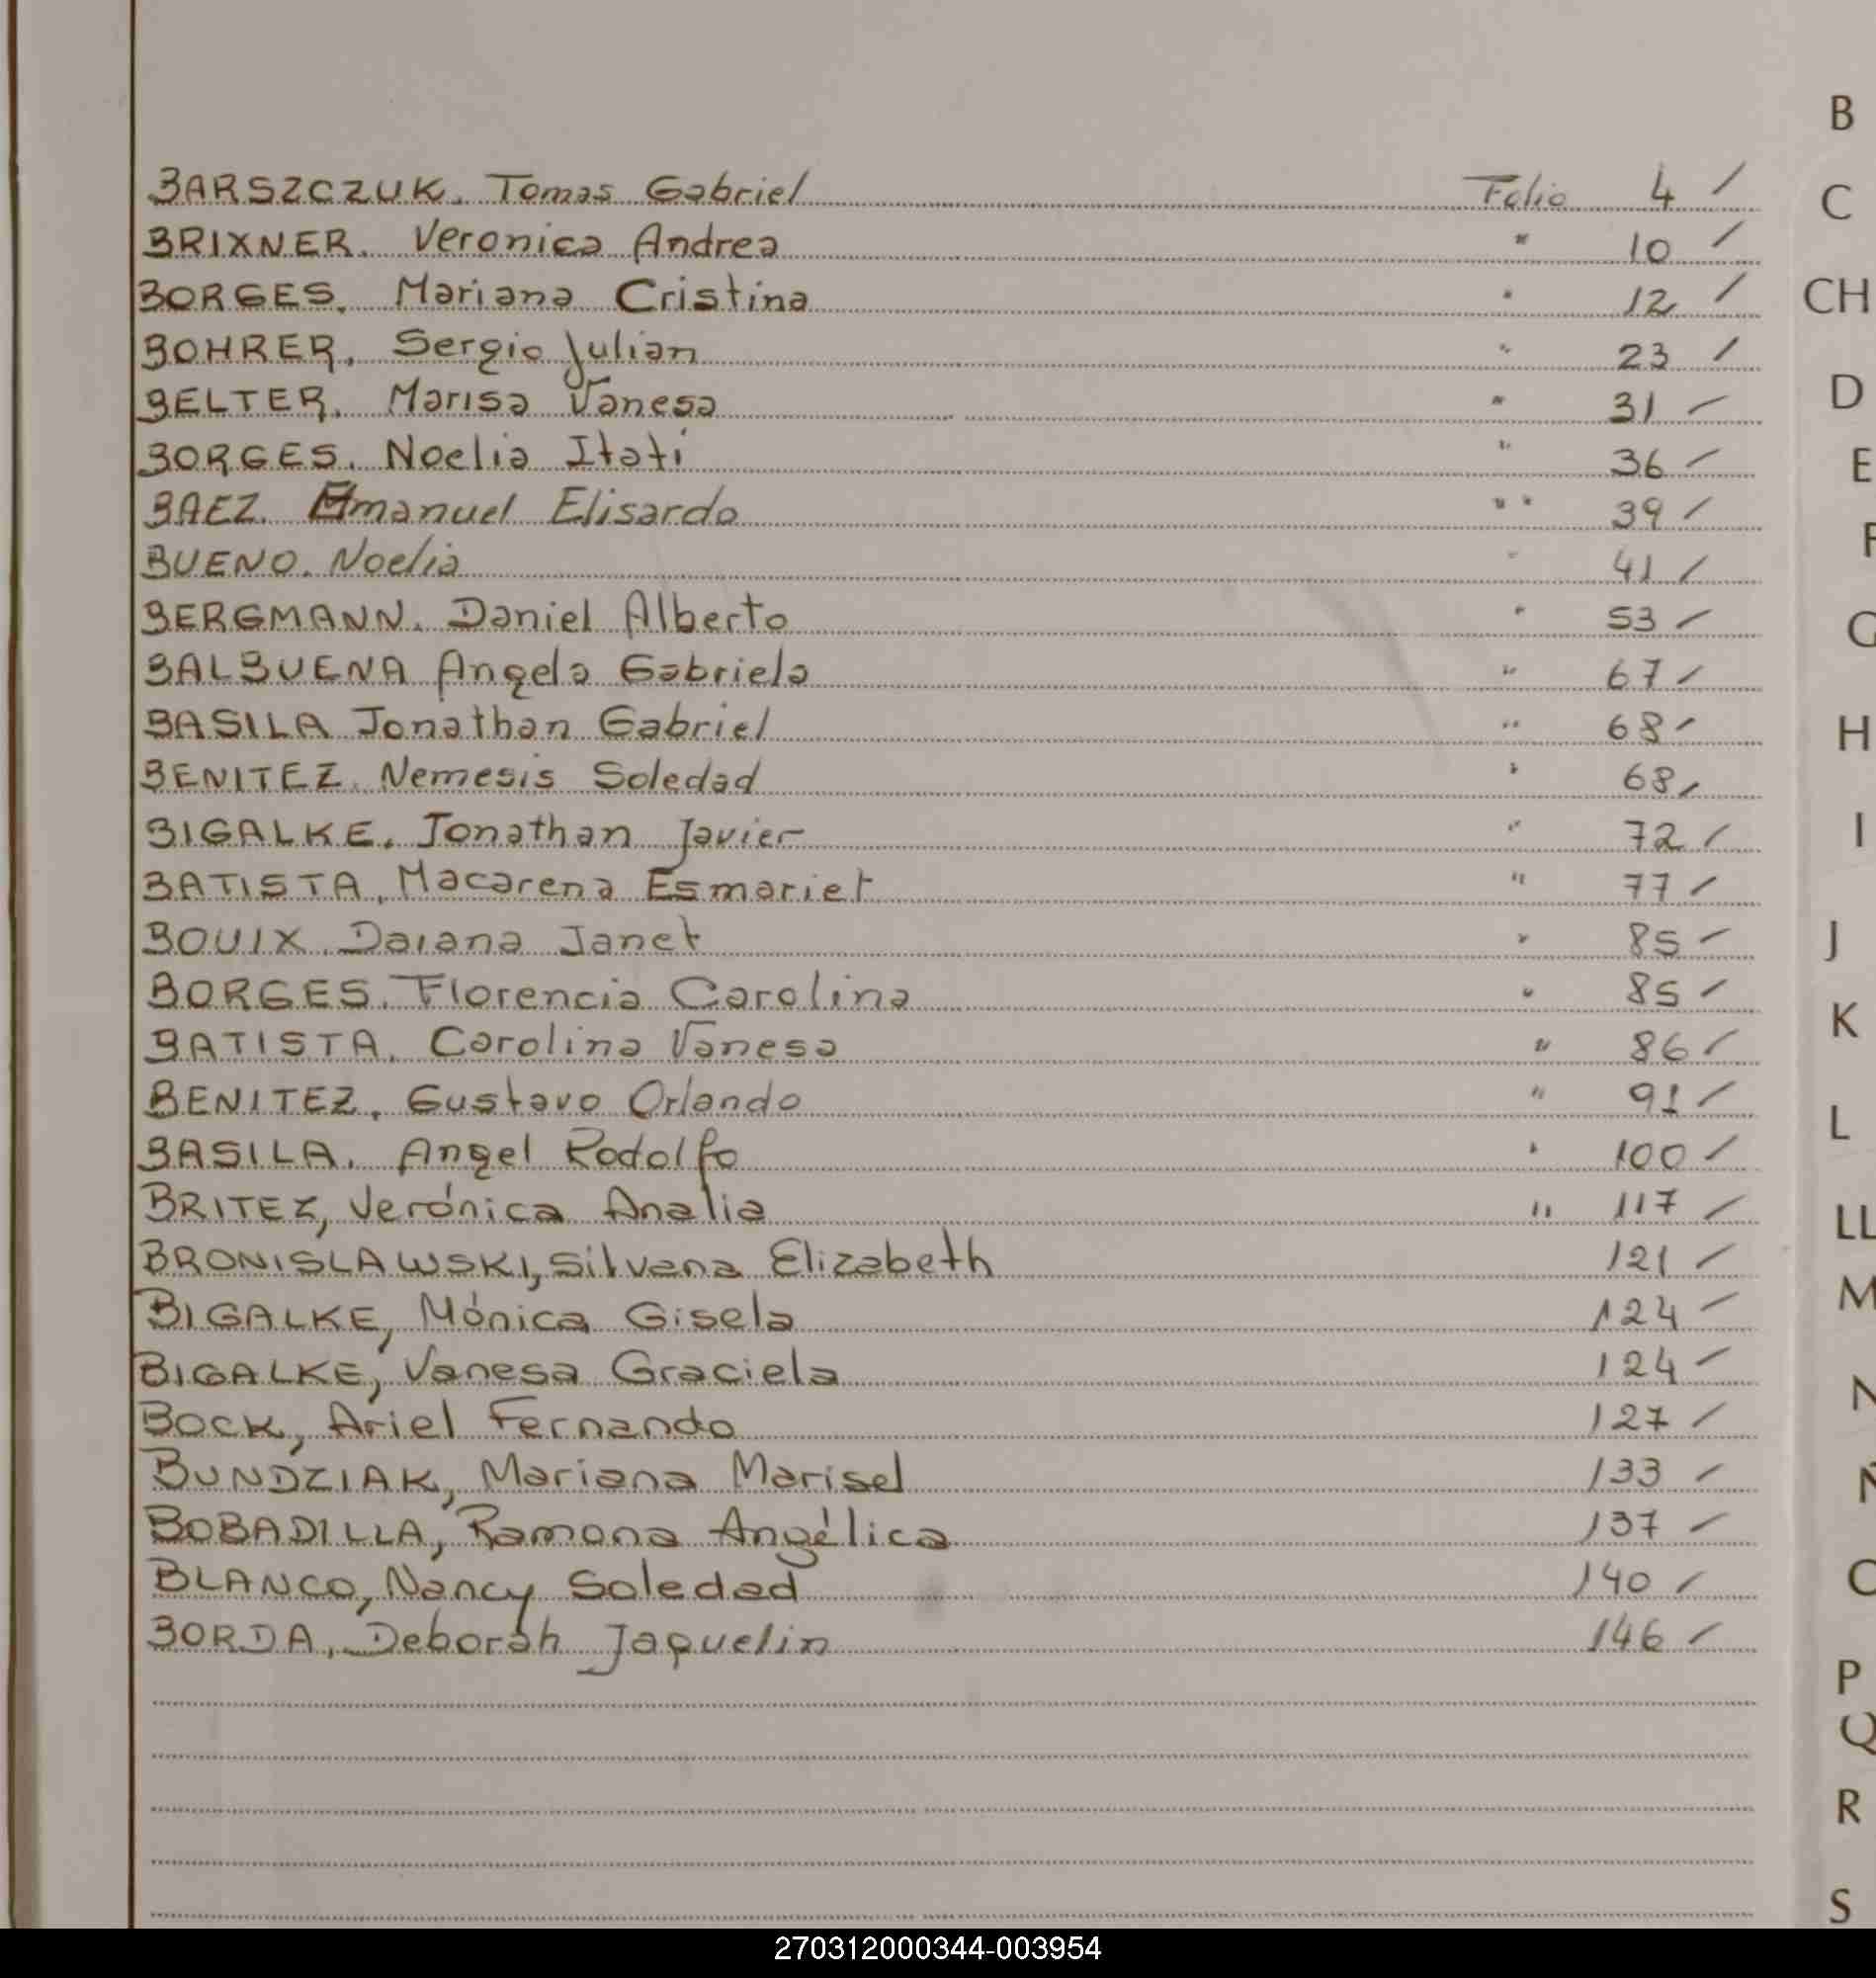 BARSZCZUK, Tomas Gabriel Folio 4 /
BRIXNER. Veronica Andrea " 10 /
BORGES, Mariana Cristina " 12 /
BOHRER, Sergio Julian " 23 /
BELTER, Marisa Vanesa " 31 /
BORGES, Noelia Itatí " 36 /
BAEZ. Emanuel Elisardo " " 39 /
BUENO. Noelia " 41 /
BERGMANN. Daniel Alberto " 53 /
BALBUENA Angela Gabriela " 67 /
BASILA Jonathan Gabriel " 68 /
BENITEZ. Nemesis Soledad " 68 /
BIGALKE, Jonathan Javier " 72 /
BATISTA, Macarena Esmariet " 77 /
BOUIX. Daiana Janet " 85 /
BORGES. Florencia Carolina " 85 /
BATISTA. Carolina Vanesa " 86 /
BENITEZ, Gustavo Orlando " 91 /
BASILA, Angel Rodolfo " 100 /
BRITEZ, Verónica Analia " 117 /
BRONISLAWSKI, Silvana Elizabeth 121 /
BIGALKE, Mónica Gisela 124 /
BIGALKE, Vanesa Graciela 124 /
BOCK, Ariel Fernando 127 /
BUNDZIAK, Mariana Marisel 133 /
BOBADILLA, Ramona Angélica 137 /
BLANCO, Nancy Soledad 140 /
BORDA, Deborah Jaquelin 146 /
B
C
CH
D
E
F
G
H
I
J
K
L
LL
M
N
Ñ
O
P
Q
R
S
270312000344-003954